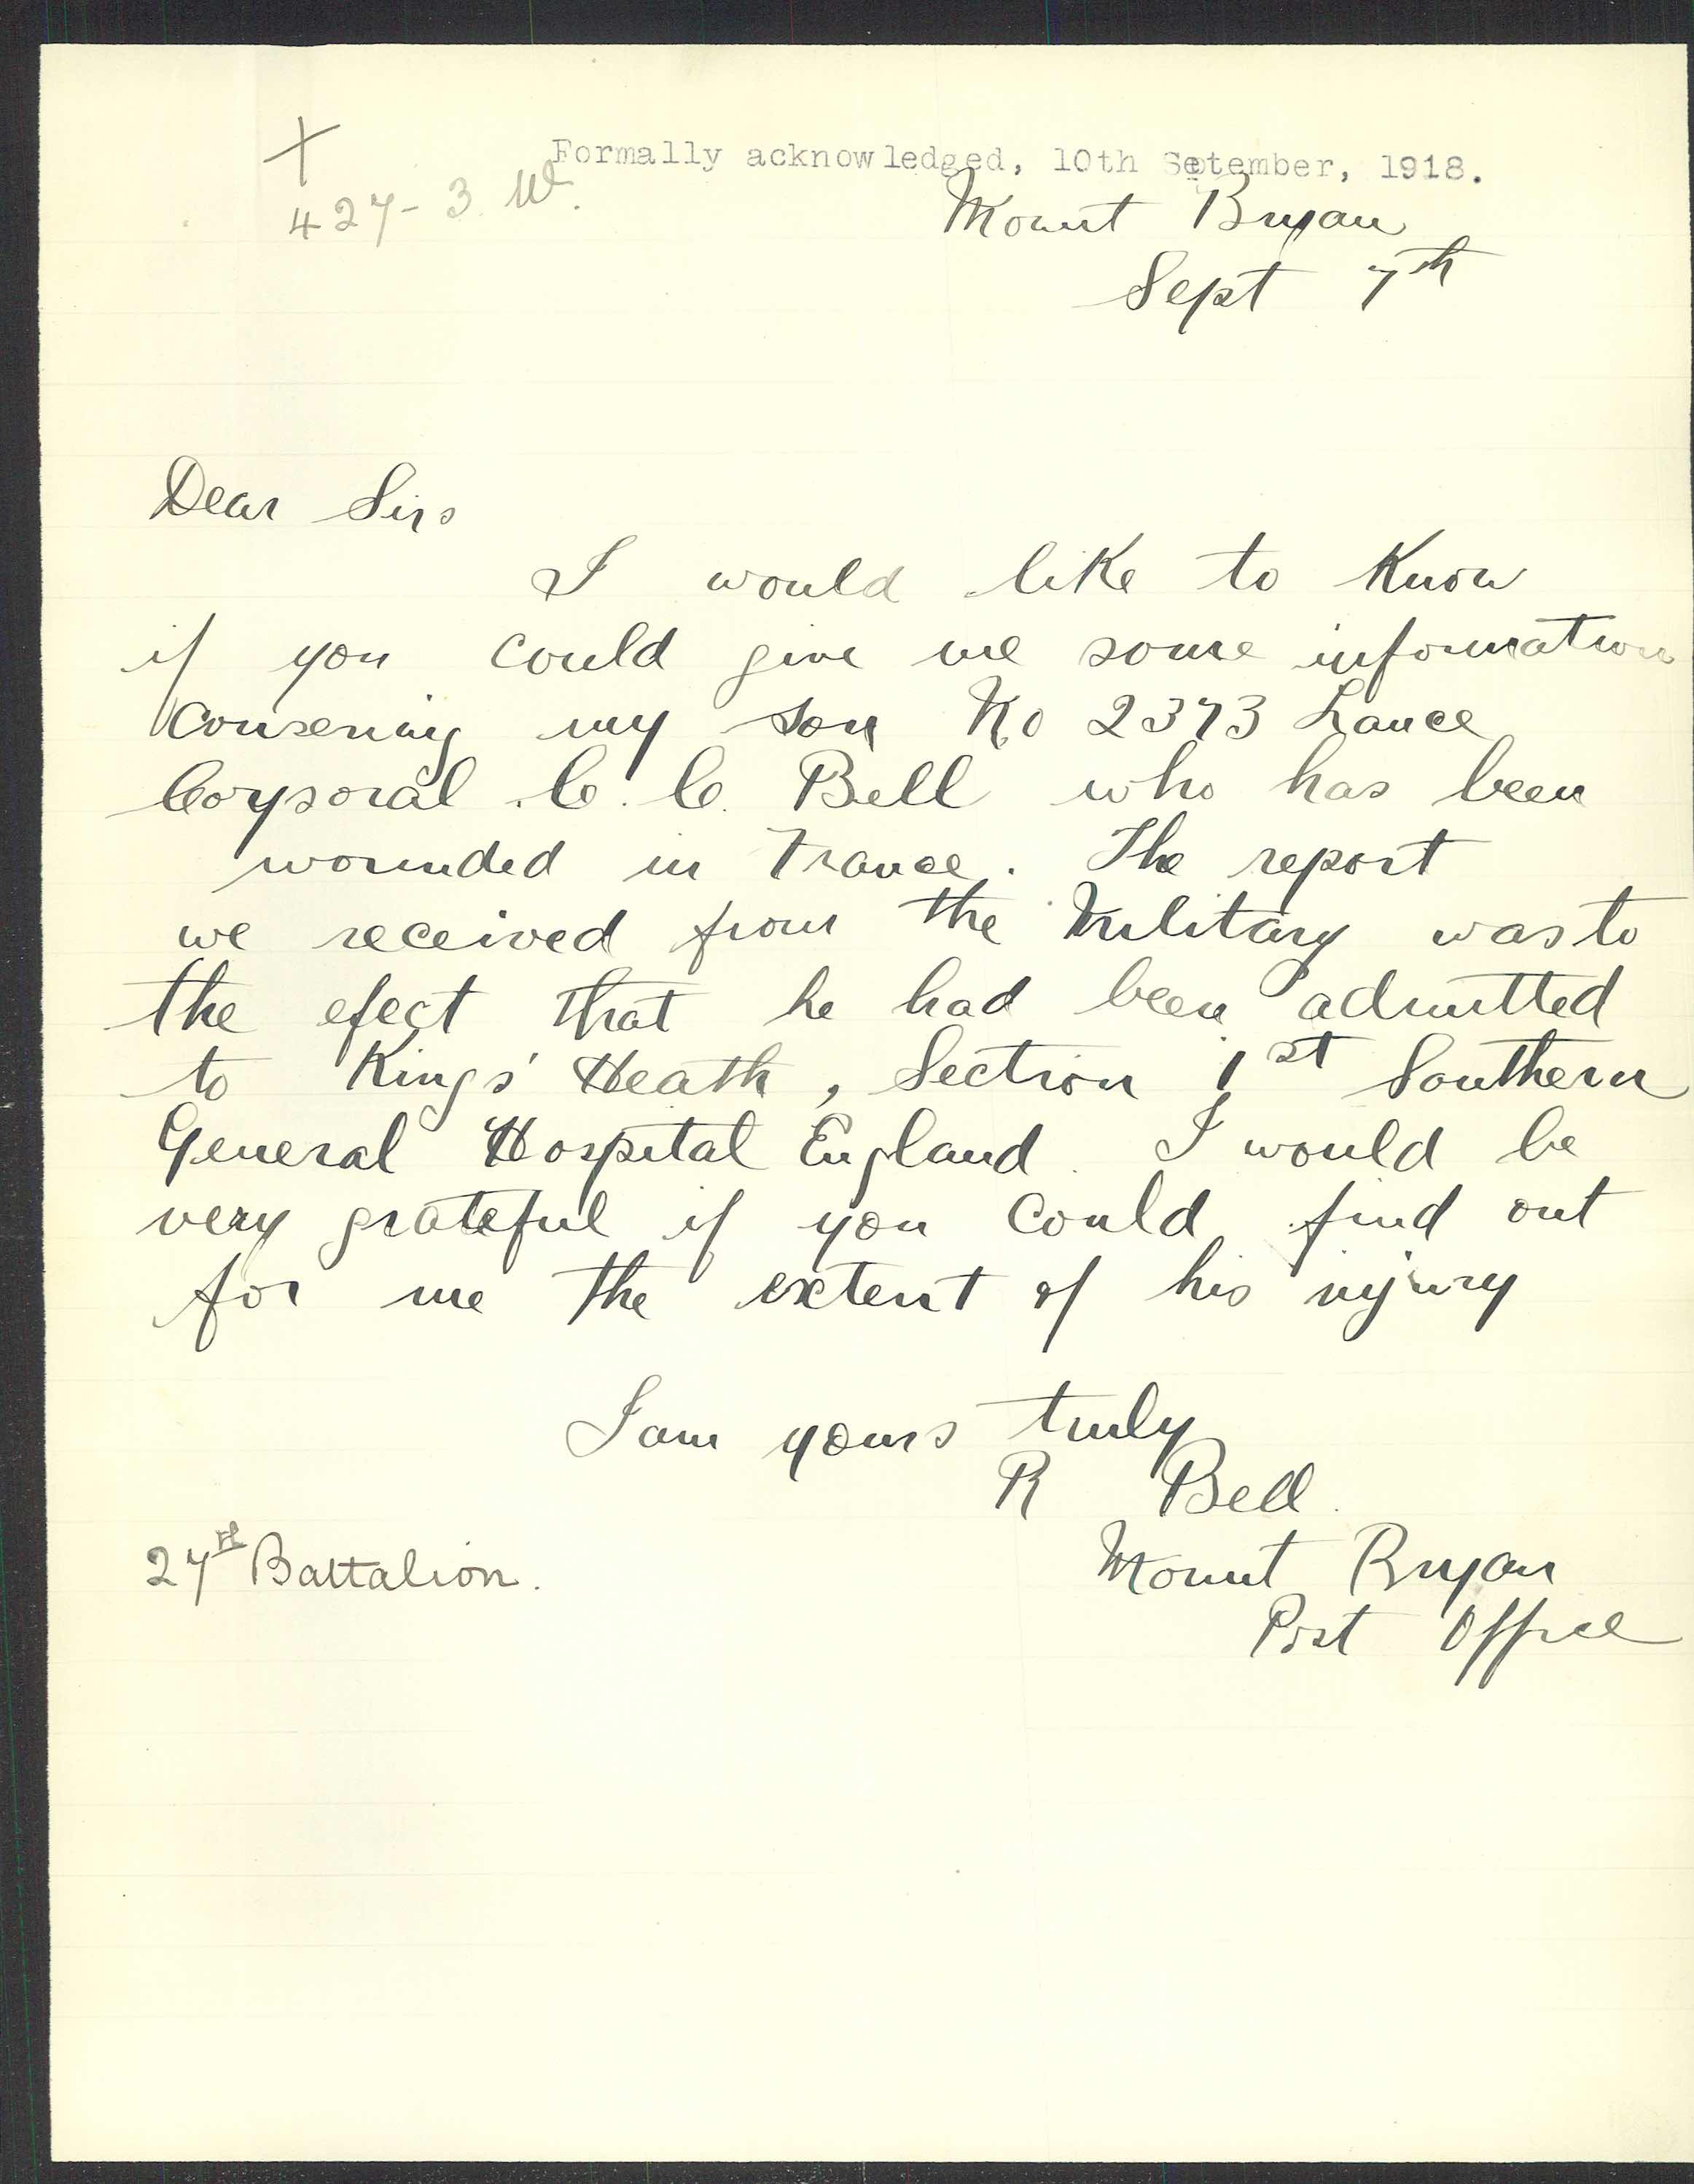 +
Formally acknowledged, 10th Setember, 1918.
427-3. W.
Mount Bryan
Sept 7th
Dear Sirs
I would like to Know
if you could give me some information
Consering my son No 2373 Lance
Corporal C. C. Bell who has been
wounded in France. The report
we received from the Military was to
the efect that he had been admitted
to Kings' Heath, Section 1st Southern
General Hospital England. I would be
very grateful if you could find out
for me the extent of his injury
I am yours truly
R Bell.
27th Battalion.
Mount Bryan
Post Office